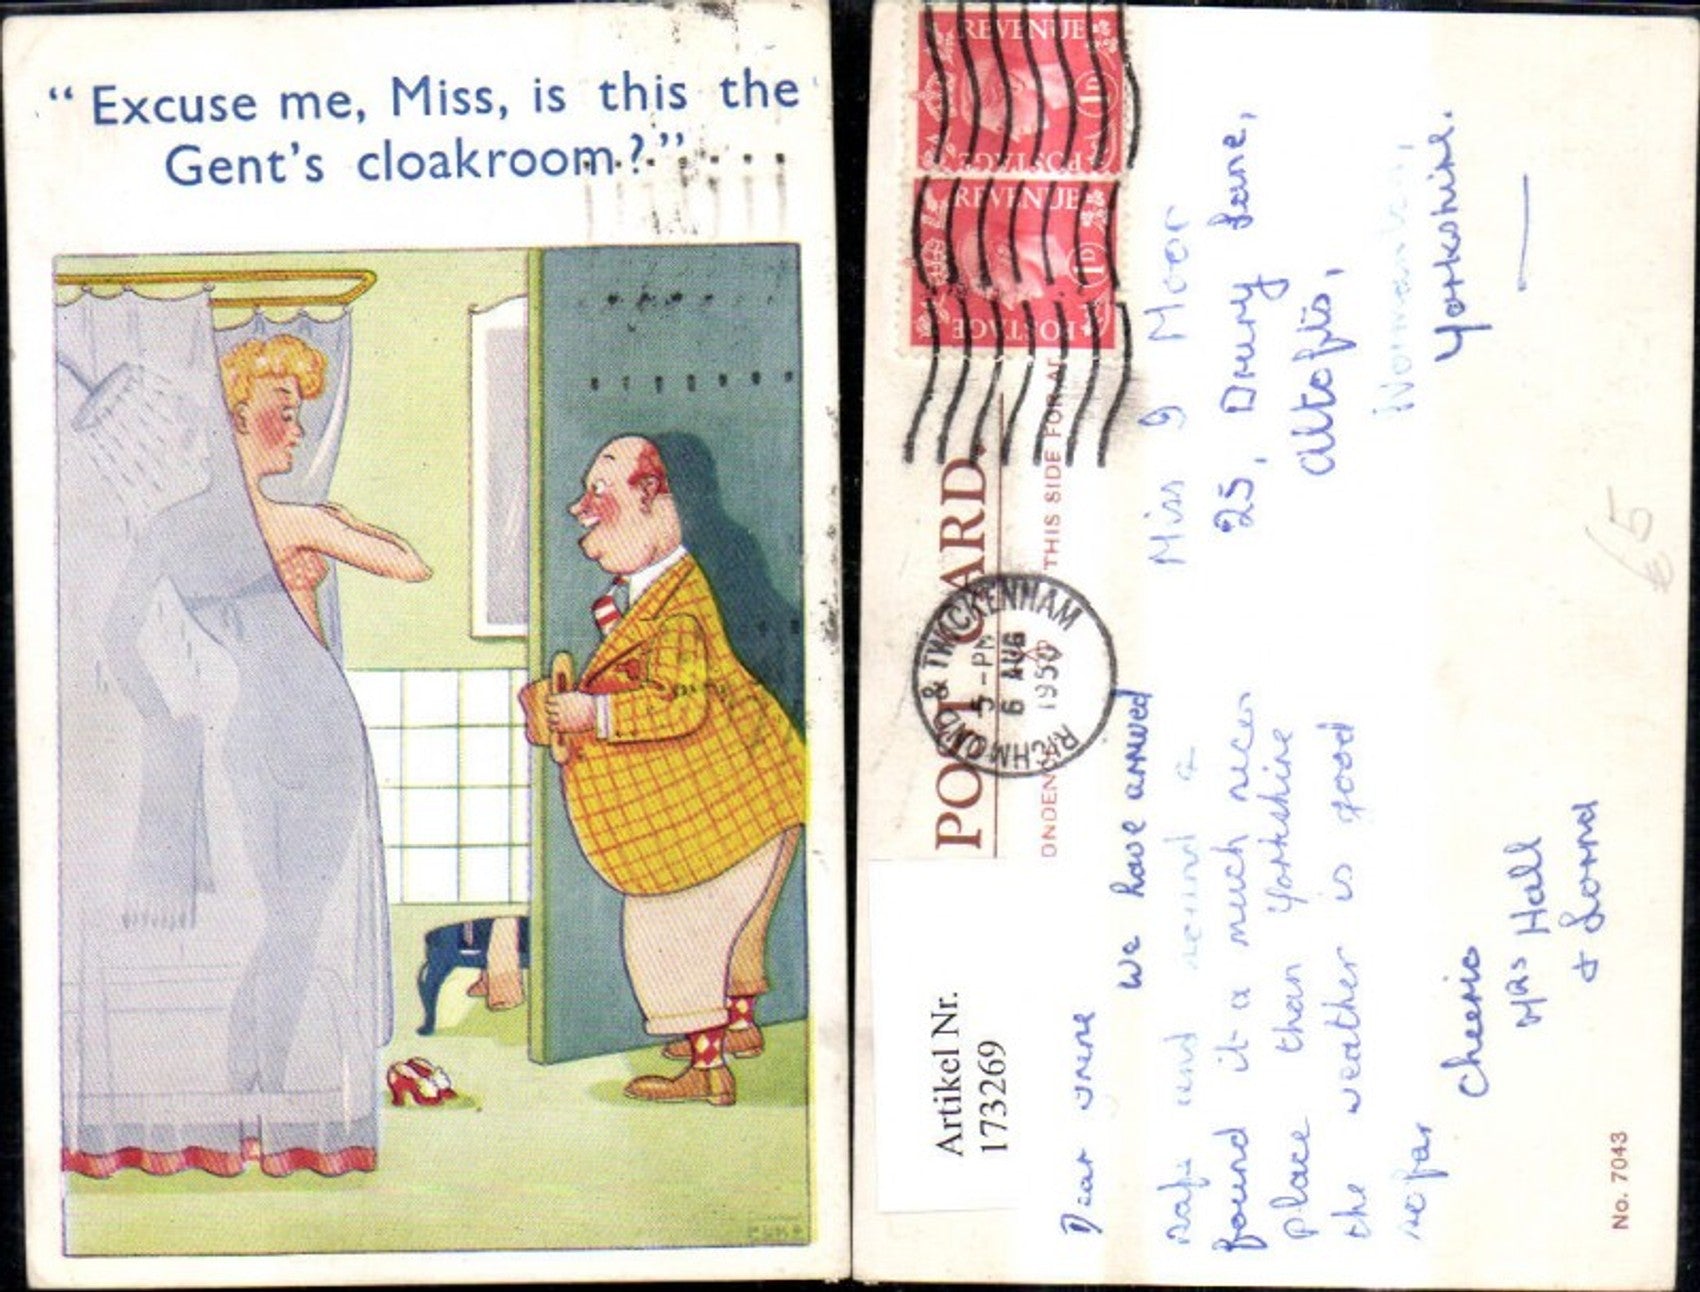 “Excuse me, Miss, is this the
Gent's cloakroom?”
POST CARD.
THIS SIDE FOR AD
ONDEN
REVENUE
POSTAGE
1D
REVENUE
POSTAGE
1D
RICHMOND & TWICKENHAM
5-PM
6 AUG
1950
Artikel Nr.
173269
Dear
We have arrived
safe and sound &
found it a much nicer
place than Yorkshire
the weather is good
so far
Cheerio
Mrs Hall
& Lorna
Miss J Moor
25, Drury Lane,
Altofts,
Normanton,
Yorkshire.
€5
No. 7043